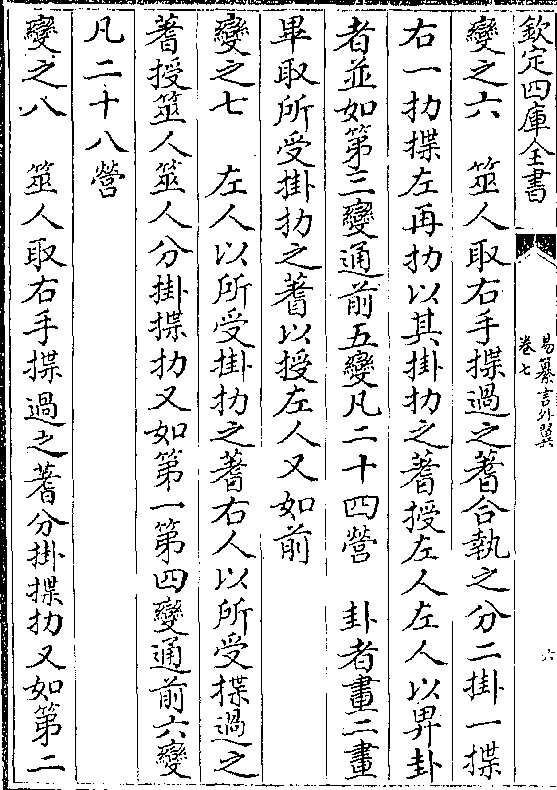 欽定四庫全書
易纂言外翼
卷七
六
變之六　筮人取右手揲過之蓍合執之分二掛一揲
右一扐揲左再扐以其掛扐之蓍授左人左人以畀卦
者並如第三變通前五變凡二十四營　卦者畫二畫
畢取所受掛扐之蓍以授左人又如前
變之七　左人以所受掛扐之蓍右人以所受揲過之
蓍授筮人筮人分掛揲扐又如第一第四變通前六變
凡二十八營
變之八　筮人取右手揲過之蓍分掛揲扐又如第二